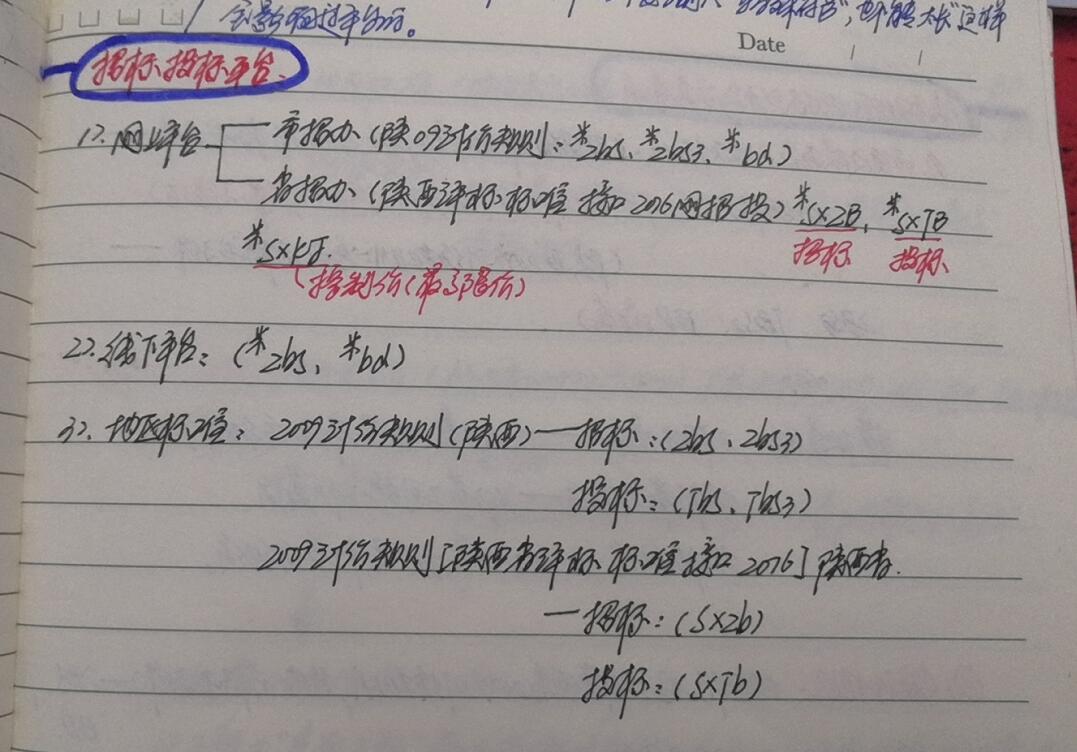 会影响过平台. "也不能太长"这样
Date
招标、投标平台.
1>.网上平台 市招办（陕09计价规则：*zbs、*zbs3、*bd）
省招办（陕西评标标准接口2016网招投）*SXZB、*SXTB
招标 投标
*SXKJ.
控制价（最高限价）
2>.线下平台：（*zbs、*bd）
3>.地区标准：2009计价规则（陕西）—招标：（Zbs、Zbs3）
投标：（Tbs、Tbs3）
2009计价规则[陕西省评标标准接口2016]陕西省.
—招标：（SXZb）
投标：（SXTb）